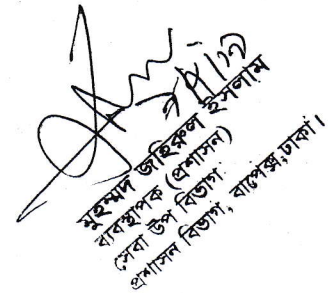 মুহম্মদ জহিরুল ইসলাম
ব্যবস্থাপক (প্রশাসন)
সেবা উপ বিভাগ
প্রশাসন বিভাগ, বাপেক্স, ঢাকা।